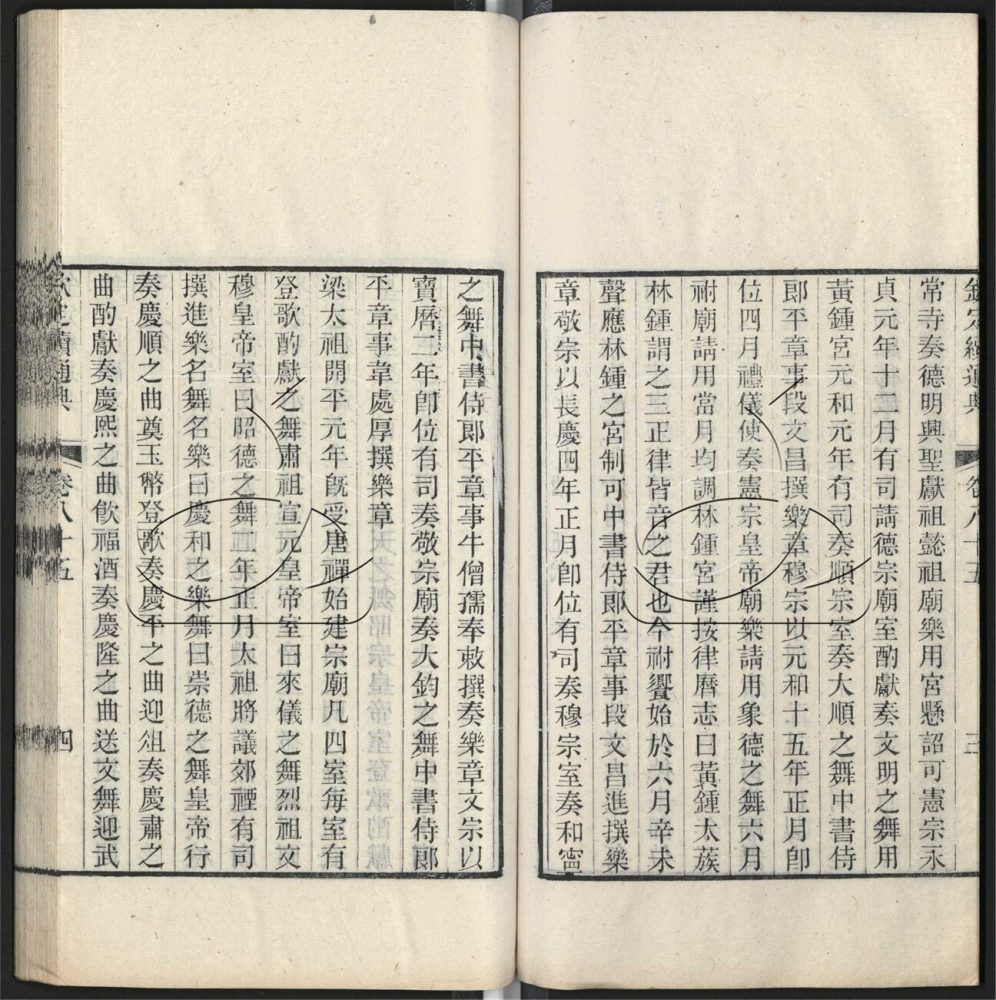 欽定續通典 卷八十五 三
常寺奏德明興聖獻祖懿祖廟樂用宮懸詔可憲宗永
貞元年十二月有司請德宗廟室酌獻奏文明之舞用
黃鍾宮元和元年有司奏順宗室奏大順之舞中書侍
郎平章事段文昌撰樂章穆宗以元和十五年正月卽
位四月禮儀使奏憲宗皇帝廟樂請用象德之舞六月
祔廟請用當月均調林鍾宮謹按律曆志曰黃鍾太蔟
林鍾謂之三正律皆音之君也今祔饗始於六月辛未
聲應林鍾之宮制可中書侍郎平章事段文昌進撰樂
章敬宗以長慶四年正月卽位有司奏穆宗室奏和寧
之舞中書侍郎平章事牛僧孺奉敕撰奏樂章文宗以
寶曆二年卽位有司奏敬宗廟奏大鈞之舞中書侍郎
平章事韋處厚撰樂章
梁太祖開平元年旣受唐禪始建宗廟凡四室每室有
登歌酌獻之舞肅祖宣元皇帝室曰來儀之舞烈祖文
穆皇帝室曰昭德之舞二年正月太祖將議郊禋有司
撰進樂名舞名樂曰慶和之樂舞曰崇德之舞皇帝行
奏慶順之曲奠玉幣登歌奏慶平之曲迎俎奏慶肅之
曲酌獻奏慶熙之曲飮福酒奏慶隆之曲送文舞迎武
欽定續通典 卷八十五 四